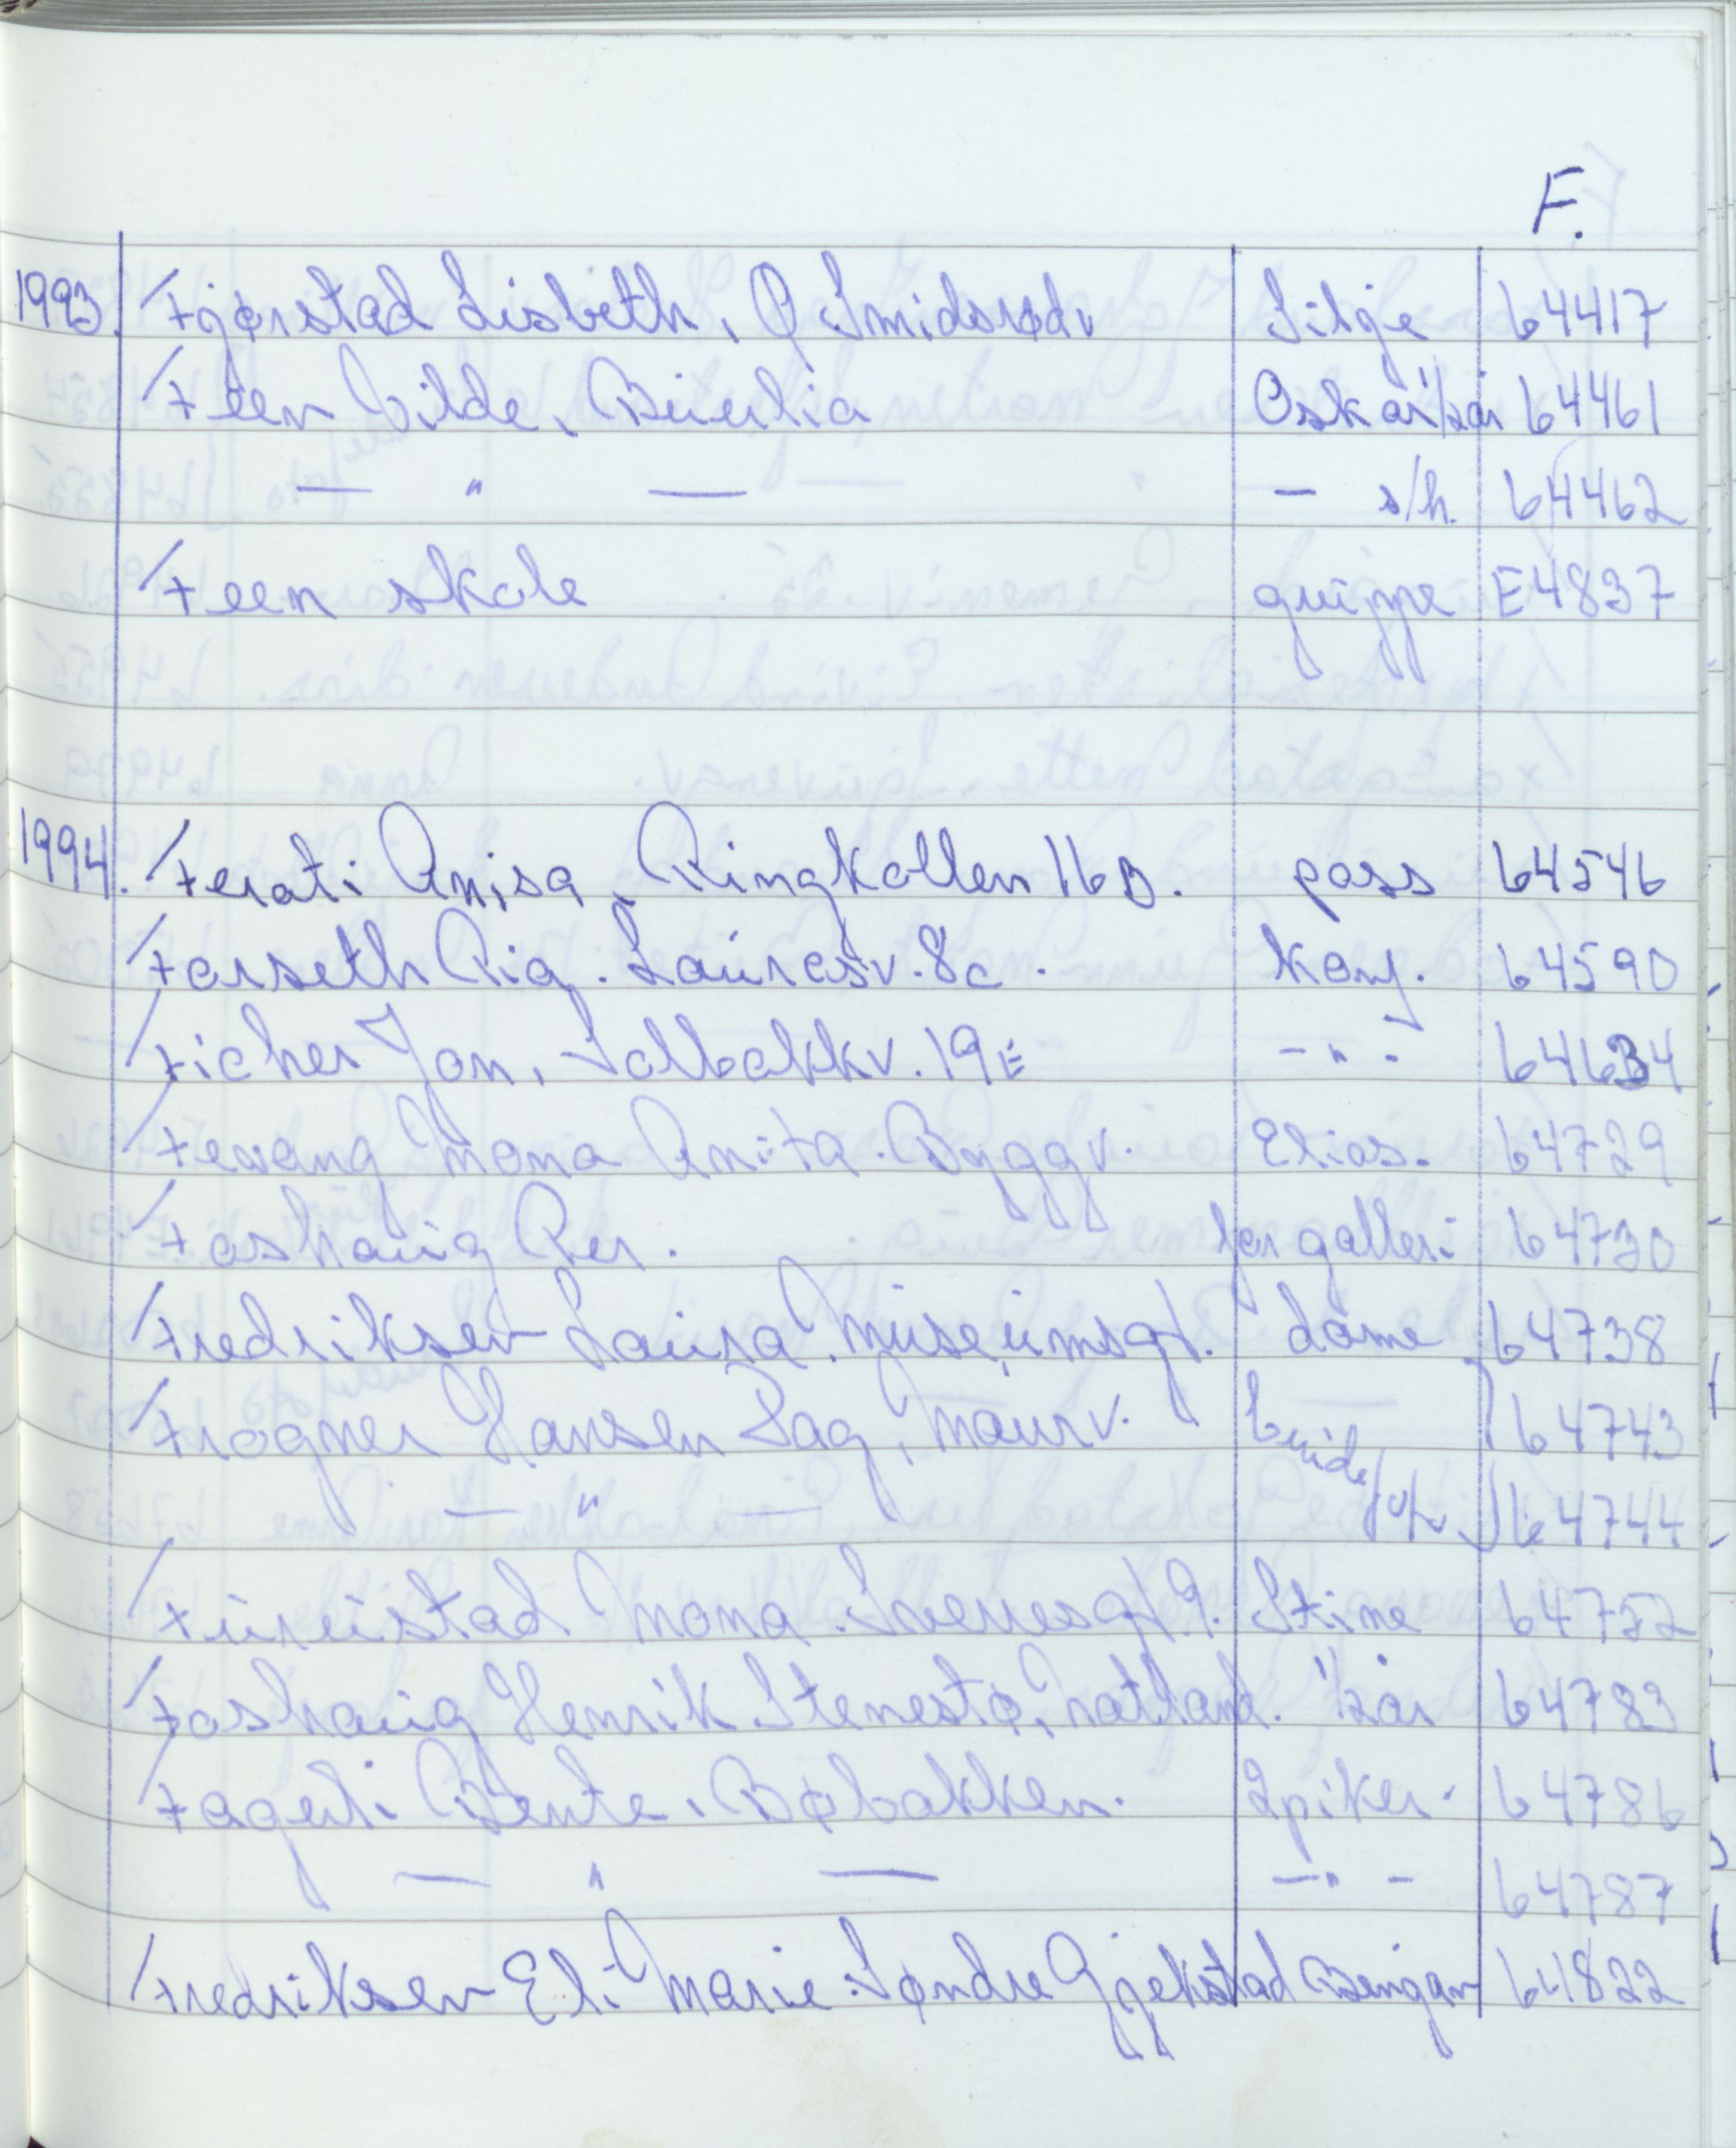 F.
1993. Fjørstad Lisbeth, P Smidsrødv Silje 64417
Feen Vilde, Buerlia Oskar 1/2 år 64461
— " — - s/h. 64462
Feen skole gruppe E4837
1994. Ferati Anisa, Ringkollen 16 B. pass 64546
Farseth Pia. Laurasv. 8c. konf. 64590
Ficher Jon, Solbakkv. 19E - " - 64634
Fevang Mona Anita. Byggv. Elias. 64729
Foshaug Per. for galleri 64730
Fredriksen Laura, Museumsgt. dame 64738
Frogner Hansen Dag, Maurv. brude 64743
— " — 64744
Furustad Mona. Sverresgt 9. Stine 64752
Foshaug Henrik Stenestø, Natland. 1/2 år 64783
Fagerli Bente, Bøbakken. 2 piker. 64786
— " — - " - 64787
Fredriksen Eli Marie. Søndre Gjekstad 64822